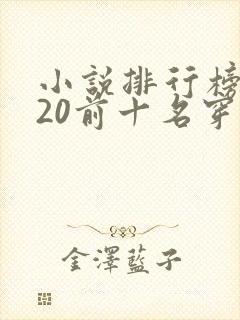 小説排行榜
20前十名穿
金澤藍子